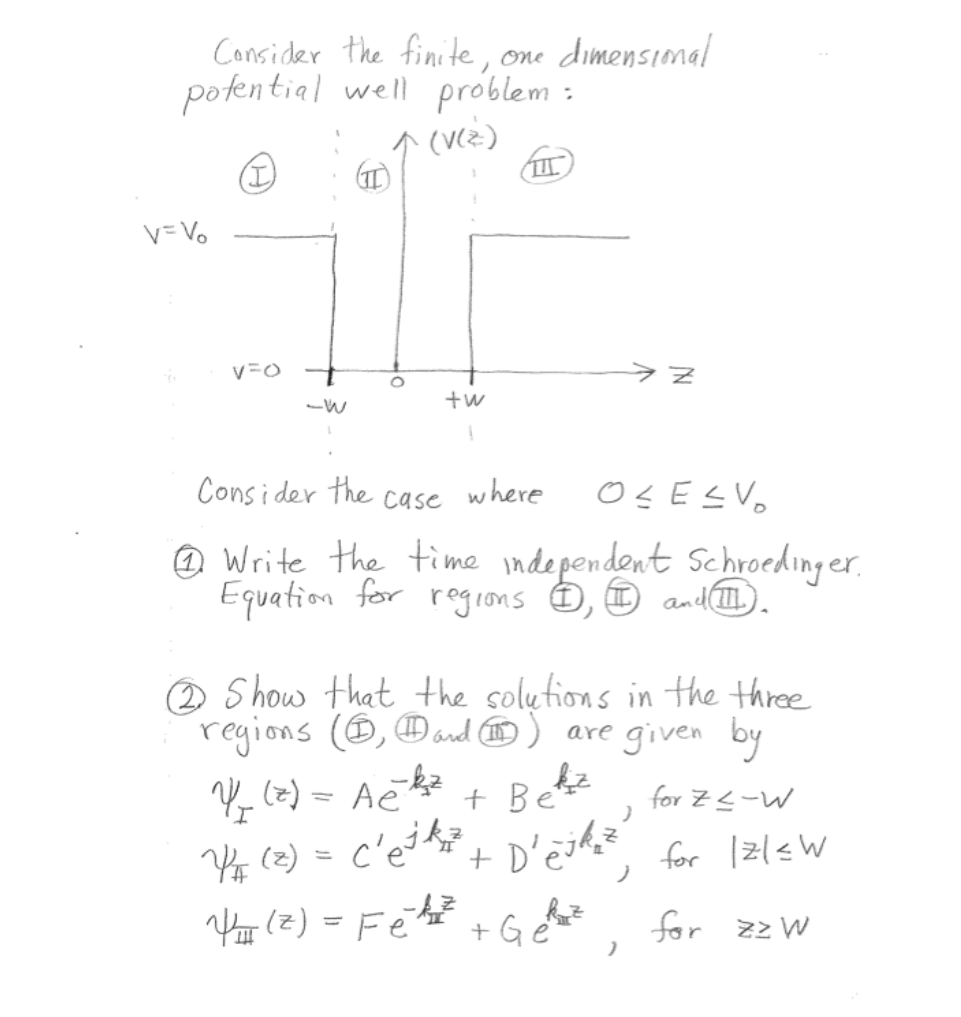 Consider the finite, one dimensional
potential well problem :
(V(z)
I
II
III
V=V₀
V=0
0
z
-W
+W
Consider the case where 0 ≤ E ≤ V₀
① Write the time independent Schroedinger.
Equation for regions Ⓘ, Ⅱ and Ⅲ.
② Show that the solutions in the three
regions (Ⓘ, Ⅱ and Ⅲ) are given by
Ψ_I (z) = Ae^{-k_I z} + Be^{k_I z}, for z ≤ -W
Ψ_II (z) = C'e^{jk_II z} + D'e^{-jk_II z}, for |z| ≤ W
Ψ_III (z) = Fe^{-k_III z} + Ge^{k_III z}, for z ≥ W